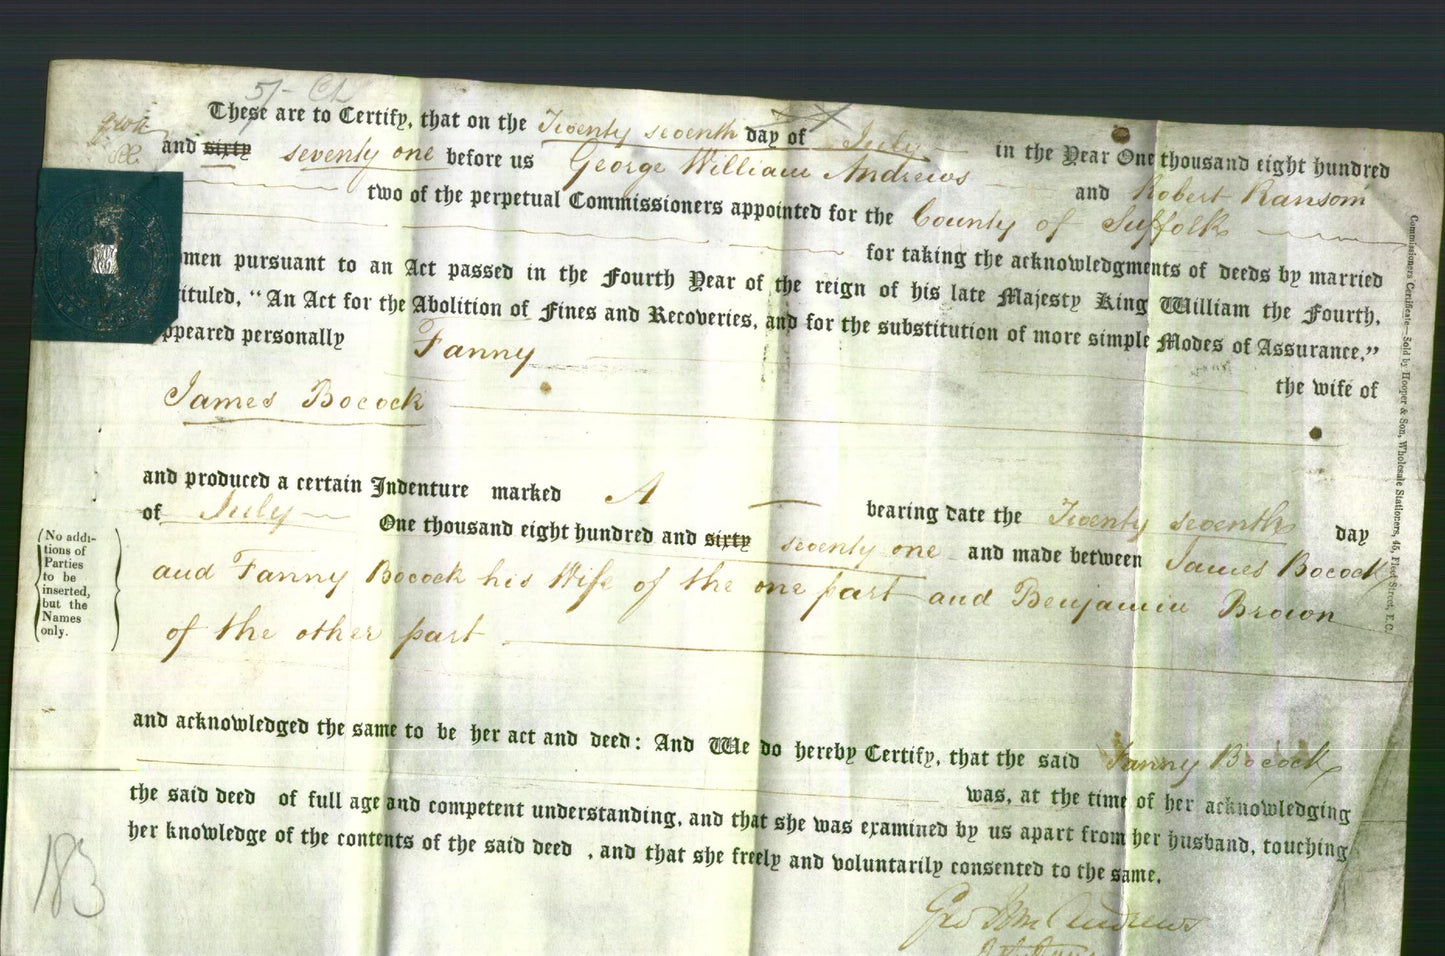 5/-
These are to Certify, that on the Twenty seventh day of July in the Year One thousand eight hundred
and sixty seventy one before us George William Andrews and Robert Ransom
two of the perpetual Commissioners appointed for the County of Suffolk
for taking the acknowledgments of deeds by married
omen pursuant to an Act passed in the Fourth Year of the reign of his late Majesty King William the Fourth,
tituled, "An Act for the Abolition of Fines and Recoveries, and for the substitution of more simple Modes of Assurance,"
ppeared personally Fanny
the wife of
James Bocock
and produced a certain Indenture marked A bearing date the Twenty seventh day
of July One thousand eight hundred and sixty seventy one and made between James Bocock
and Fanny Bocock his Wife of the one part and Benjamin Brown
of the other part
(No addi-
tions of
Parties
to be
inserted,
but the
Names
only.)
and acknowledged the same to be her act and deed: And We do hereby Certify, that the said Fanny Bocock
was, at the time of her acknowledging
the said deed of full age and competent understanding, and that she was examined by us apart from her husband, touching
her knowledge of the contents of the said deed , and that she freely and voluntarily consented to the same.
183
Geo Wm Andrews
Commissioners Certificate—Sold by Hooper & Son, Wholesale Stationers, 45, Fleet Street, E.C.